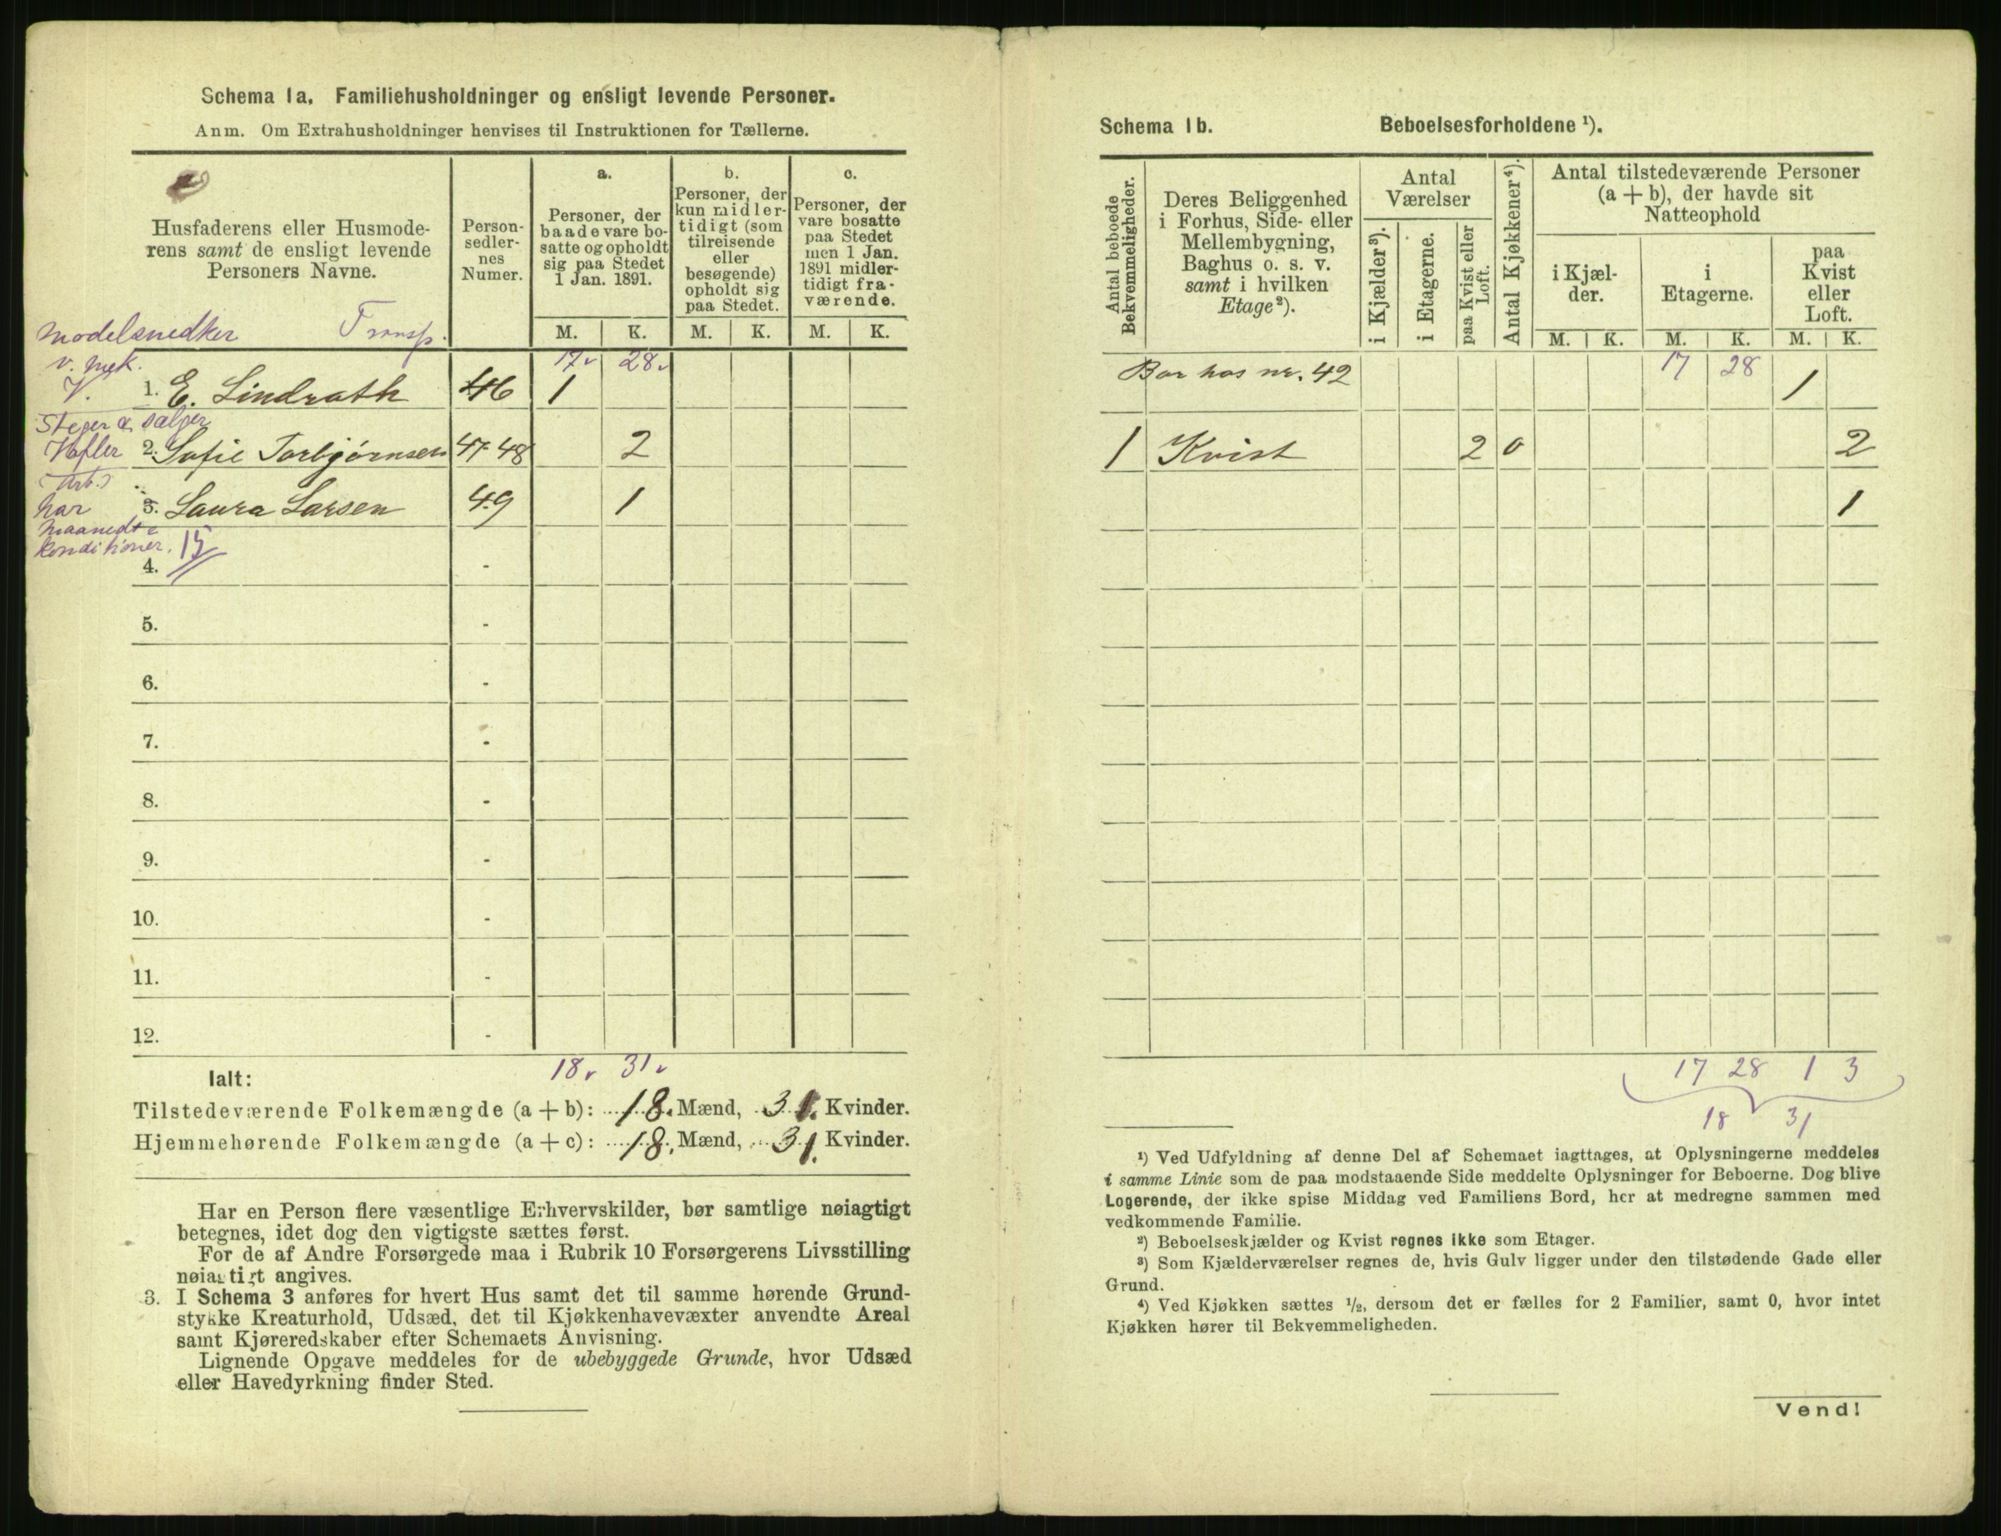 Schema 1a. Familiehusholdninger og ensligt levende Personer.
Anm. Om Extrahusholdninger henvises til Instruktionen for Tællerne.
Husfaderens eller Husmode-
rens samt de ensligt levende
Personers Navne.
Person-
sedler-
nes
Numer.
a.
Personer, der
baade vare bo-
satte og opholdt
sig paa Stedet
1 Jan. 1891.
b.
Personer, der
kun midler-
tidigt (som
tilreisende
eller
besøgende)
opholdt sig
paa Stedet.
c.
Personer, der
vare bosatte
paa Stedet
men 1 Jan.
1891 midler-
tidigt fra-
værende.
M. K. M. K. M. K.
Modelsnedker Transp.
v. mek. 17 28
V. 1. E. Lindrath 46 1
Steger & sælger
Vafler 2. Sofie Torbjørnsen 47-48 2
(Arb.)
har 3. Laura Larsen 49 1
maanedte
konditioner. 15
4. -
5. -
6. -
7. -
8. -
9. -
10. -
11. -
12. -
18 31
Ialt:
Tilstedeværende Folkemængde (a + b): 18. Mænd, 31. Kvinder.
Hjemmehørende Folkemængde (a + c): 18. Mænd, 31. Kvinder.
Har en Person flere væsentlige Erhvervskilder, bør samtlige nøiagtigt
betegnes, idet dog den vigtigste sættes først.
For de af Andre Forsørgede maa i Rubrik 10 Forsørgerens Livsstilling
nøiagtigt angives.
3. I Schema 3 anføres for hvert Hus samt det til samme hørende Grund-
stykke Kreaturhold, Udsæd, det til Kjøkkenhavevæxter anvendte Areal
samt Kjøreredskaber efter Schemaets Anvisning.
Lignende Opgave meddeles for de ubebyggede Grunde, hvor Udsæd
eller Havedyrkning finder Sted.
Schema 1b. Beboelsesforholdene ¹).
Antal beboede
Bekvemmeligheder.
Deres Beliggenhed
i Forhus, Side- eller
Mellembygning,
Baghus o. s. v.
samt i hvilken
Etage²).
Antal
Værelser
i Kjælder³).
i Etagerne.
paa Kvist eller
Loft.
Antal Kjøkkener⁴).
Antal tilstedeværende Personer
(a + b), der havde sit
Natteophold
i Kjæl-
der.
i
Etagerne.
paa
Kvist
eller
Loft.
M. K. M. K. M. K.
17 28
Bor hos nr. 42 1
1 Kvist 2 0 2
1
17 28 1 3
18 31
¹) Ved Udfyldning af denne Del af Schemaet iagttages, at Oplysningerne meddeles
i samme Linie som de paa modstaaende Side meddelte Oplysninger for Beboerne. Dog blive
Logerende, der ikke spise Middag ved Familiens Bord, her at medregne sammen med
vedkommende Familie.
²) Beboelseskjælder og Kvist regnes ikke som Etager.
³) Som Kjælderværelser regnes de, hvis Gulv ligger under den tilstødende Gade eller
Grund.
⁴) Ved Kjøkken sættes ¹/₂, dersom det er fælles for 2 Familier, samt 0, hvor intet
Kjøkken hører til Bekvemmeligheden.
Vend!